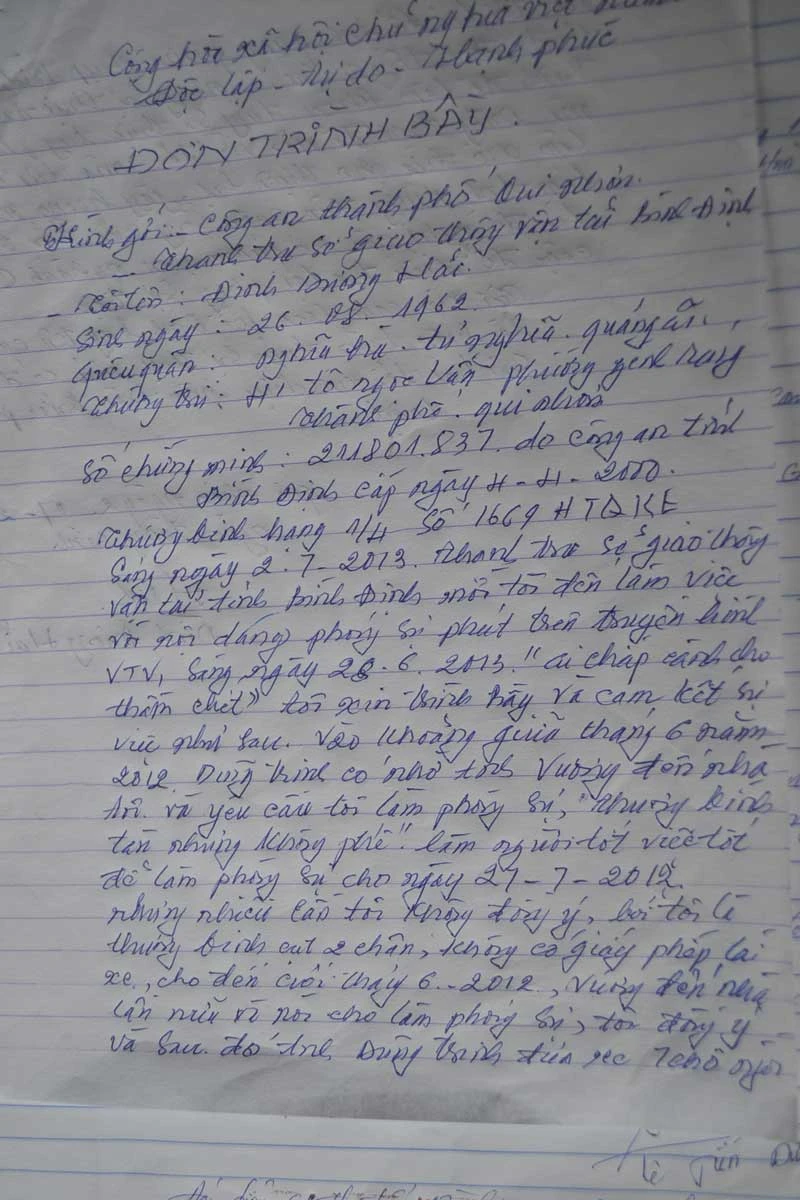 Cộng hòa xã hội chủ nghĩa việt nam
Độc lập - tự do - Hạnh phúc
ĐƠN TRÌNH BẦY.
Kính gởi - Công an thành phố Qui nhơn.
- thanh tra Sở giao thông vận tải Bình Định
- tôi tên: Đinh Dương
Sinh ngày: 26. 08. 1962.
quêu quán: nghĩa tư nghĩa. quảng
thường trú: tô ngọc Vân phường
thành phố. qui nhơn
Số chứng minh: 211801.837. do công an tỉnh
Bình Định cấp ngày - 2000.
thương binh hạng 1/4 Số 1669
Sáng ngày 2.7-2013. thanh tra Sở giao thông
vận tải tỉnh Bình Định mời tôi đến làm việc
với nội dung phóng sự phát trên truyền hình
VTV, Sáng ngày 28.6.2013. "ai chắp cánh cho
thần chết" tôi xin trình bầy và cam kết sự
việc như sau. Vào khoảng giữa tháng 6 năm
2012. Dũng có nhờ Vương đến nhà
tôi. và yêu cầu tôi làm phóng sự, "thương binh
tàn nhưng không phế". làm người tốt việc tốt
để làm phóng sự cho ngày 27-7-2012.
nhưng nhiều lần tôi không đồng ý, bởi tôi là
thương binh cụt 2 chân, không có giấy phép lái
xe, cho đến cuối tháng 6.-2012., Vương đến nhà
lần nữa và nói cho làm phóng sự, tôi đồng ý
và sau. đó Dũng đưa xe 7 chỗ
Lê Tiến